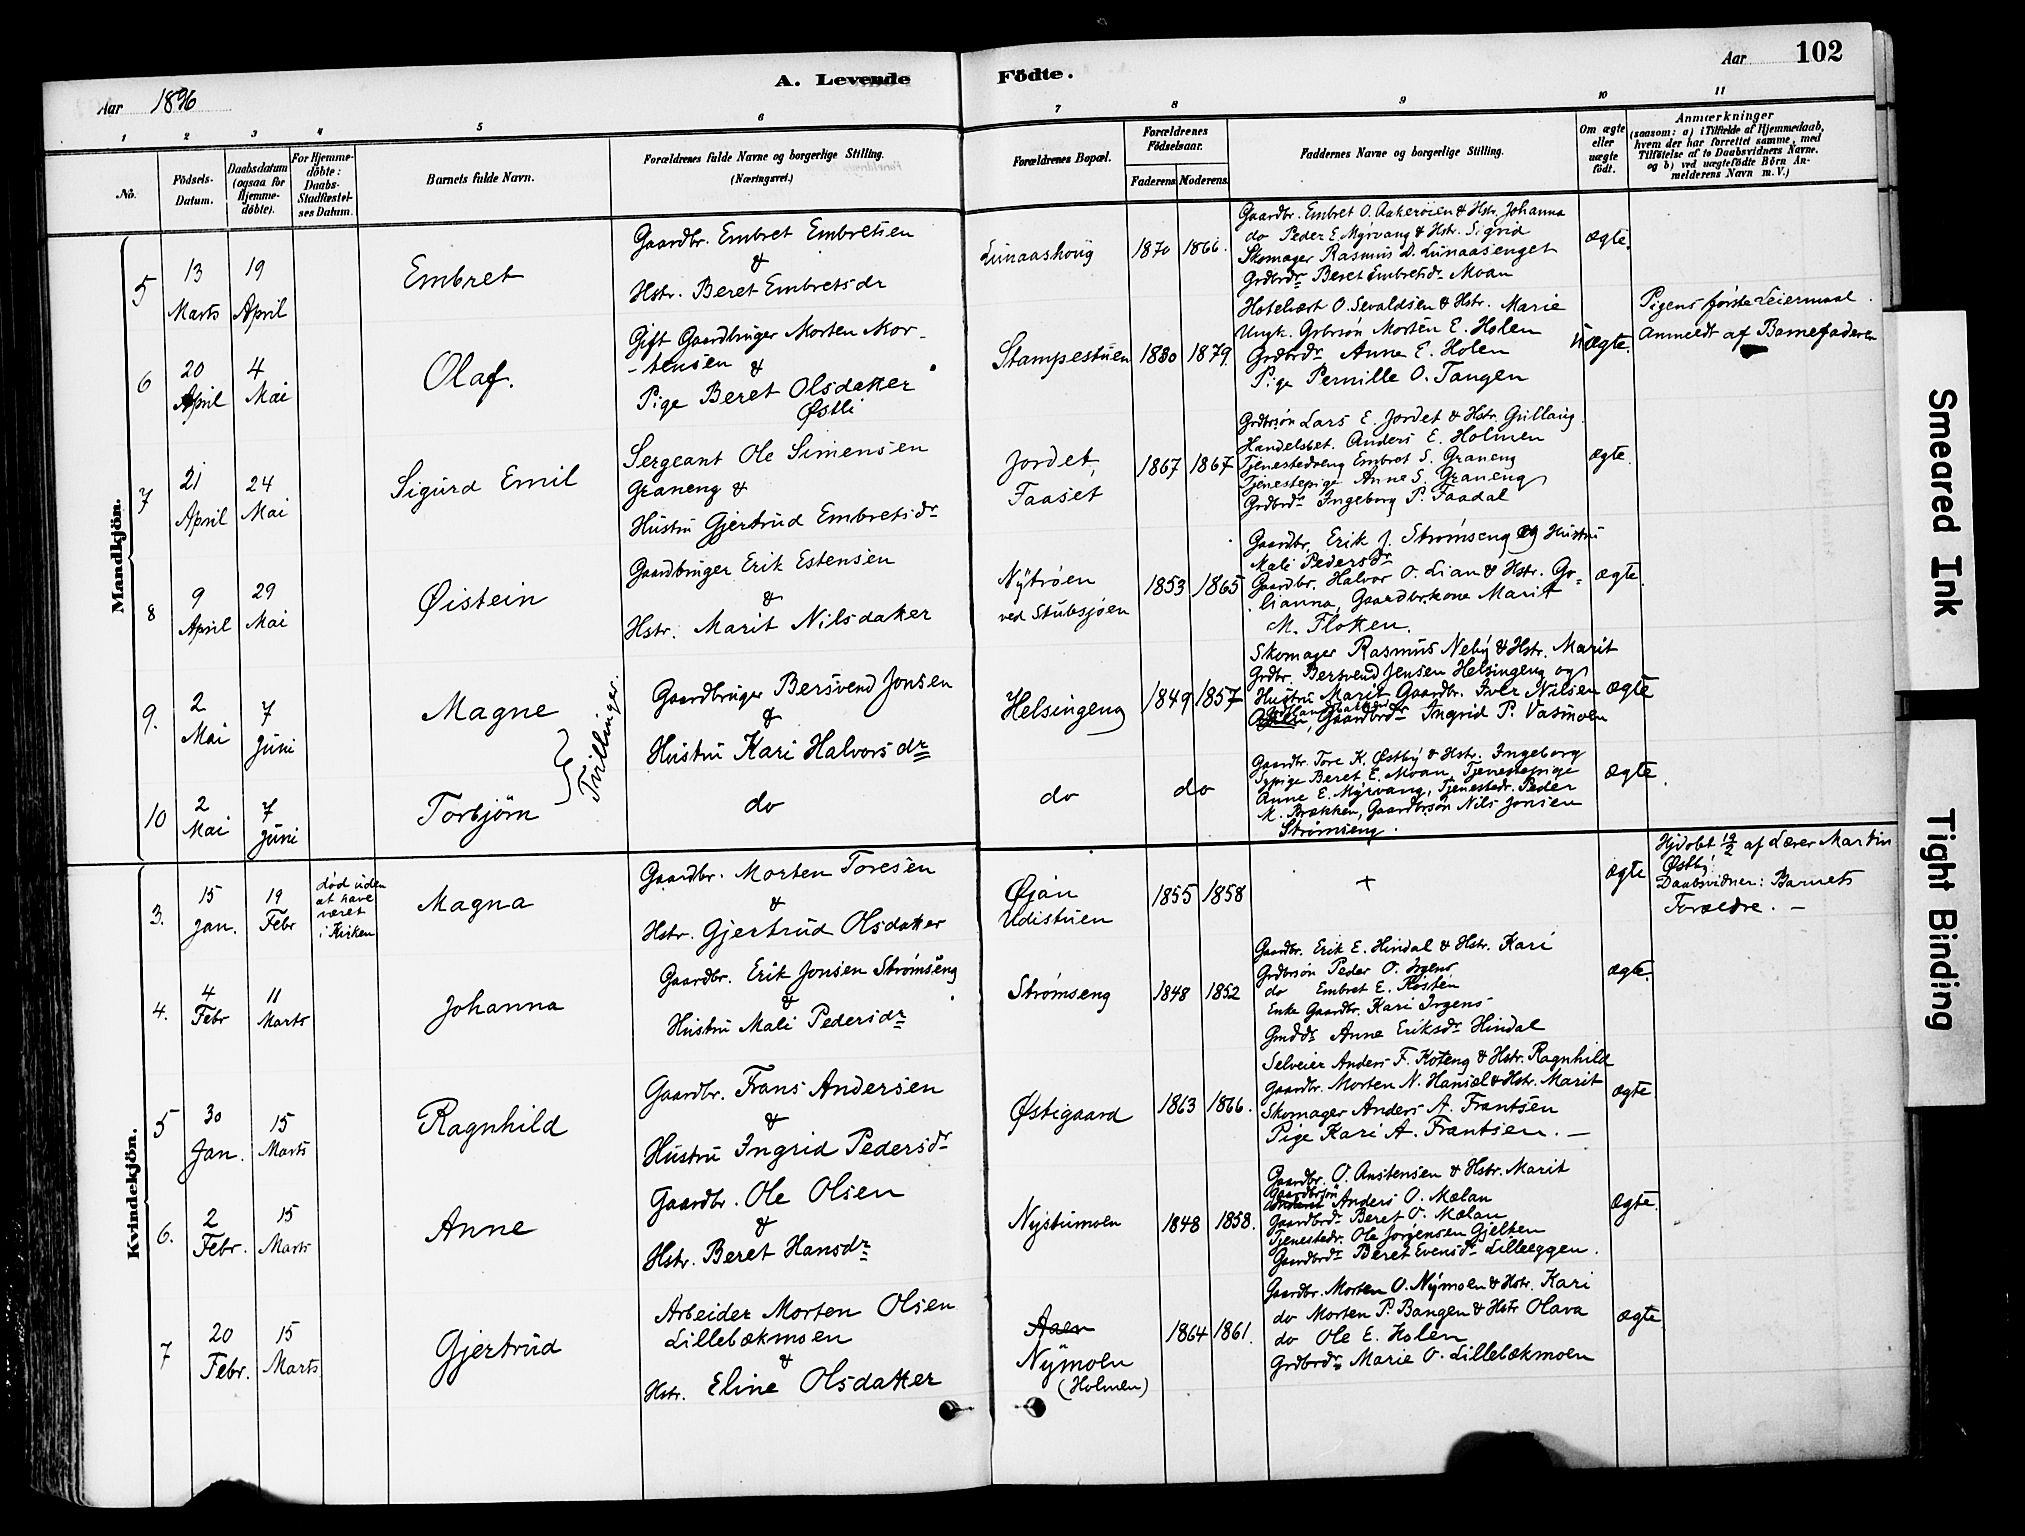 A. Levende Födte.
Aar 1896
Aar 102
1 2 3 4 5 6 7 8 9 10 11
No.
Födsels-Datum.
Daabsdatum (ogsaa for Hjemme-döbte).
For Hjemme-döbte: Daabs-Stadfæstel-ses Datum.
Barnets fulde Navn.
Forældrenes fulde Navne og borgerlige Stilling. (Næringsvei.)
Forældrenes Bopæl.
Forældrenes Födselsaar.
Faderens Moderens
Faddernes Navne og borgerlige Stilling.
Om ægte eller uægte født.
Anmærkninger
(saasom: a) i Tilfælde af Hjemmedaab,
hvem der har forrettet samme, med
Tilføielse af to Daabsvidners Navne.
og b) ved uægtefödte Börn An-
melderens Navn m. V.)
Mandkjön.
5
13 Marts
19 April
Embret
Gaardbr. Embret Embretsen
&
Hstr. Beret Embretsdr
Lunaashoug
1870 1866.
Gaardbr. Embret O. Aakerøien & Hstr. Johanna
do Peder E. Myrvang & Hstr. Sigrid
Skomager Rasmus D. Lunaasenget
Grdbrdr Beret Embretsdr Moan
ægte.
6
20 April
4 Mai
Olaf.
Gift Gaardbruger Morten Mor-
-tensen &
Pige Beret Olsdatter
Østli
Stampestuen
1830 1879.
Hotelvært O. Sevaldsen & Hstr. Marie
Ungk. Grbrsøn Morten E. Holen
Grdbrdr Anne E. Holen
Pige Pernille O. Tangen
uægte.
Pigens første Leiermaal.
Anmeldt af Barnefaderen
7
21 April
24 Mai
Sigurd Emil
Sergeant Ole Simensen
Graneng &
Hustru Gjertrud Embretsdr
Jordet,
Faaset
1867 1867
Grdbrsøn Lars E. Jordet & Hstr. Gullaug.
Handelsbet. Anders E. Holmen
Tjenestedreng Embret S. Graneng
Tjenestepige Anne S. Graneng
Grdbrdr Ingeborg P. Faadal
ægte.
8
9 April
29 Mai
Øistein
Gaardbruger Erik Estensen
&
Hstr. Marit Nilsdatter
Nytrøen
ved Stubsjøen
1853 1865
Gaardbr. Erik J. Strømseng og Hustru
Mali Pedersdr
Gaardbr. Halvor O. Lian & Hstr. Go-
lianna, Gaardbr.kone Marit
M. Flotten.
ægte.
9.
2 Mai
7 Juni
Magne
Tvillinger.
Gaardbruger Bersvend Jonsen
&
Hustru Kari Halvorsdr
Helsingeng
1849 1857
Skomager Rasmus Neby & Hstr. Marit
Grdbr. Bersvend Jensen Helsingeng og
Hustru Marit Gaardbr. Iver Nilsen
Gaardbrdr Ingrid P. Vasmoen
ægte
10
2 Mai
7 Juni
Torbjörn
do
do
do
Gaardbr. Tore K. Østby & Hstr. Ingeborg
Sypige Beret E. Moan, Tjenestepige
Anne E. Myrvang, Tjenestedr. Peder
M. Brækken, Gaardbrsøn Nils Jonsen
Strømseng.
ægte.
Kvindekjön.
3.
15 Jan.
19 Febr
død uden
at have
været
i Kirken
Magna
Gaardbr. Morten Toresen
&
Hstr. Gjertrud Olsdatter
Øjan
Udistuen
1855 1858
+
ægte
Hjdøbt 19/2 af Lærer Martin
Østby.
Daabsvidner: Barnets
Forældre. —
4.
4 Febr
11 Marts
Johanna
Gaardbr. Erik Jonsen Strømseng
&
Hustru Mali Pedersdr
Strømseng
1848 1852
Gaardbr. Erik E. Hindal & Hstr. Kari
Grdbrsøn Peder O. Irgens
do Embret E. Røsten
Enke Gaardbr. Kari Irgens
Gmddr Anne Eriksdr Hindal
ægte.
5
30 Jan.
15 Marts
Ragnhild
Gaardbr. Frans Andersen
&
Hustru Ingrid Pedersdr
Østigaard
1863 1866.
Selveier Anders F. Koteng & Hstr. Ragnhild
Gaardbr. Morten N. Hansel & Hstr. Marit
Skomager Anders A. Frantsen
Pige Kari A. Frantsen. —
ægte
6.
2 Febr.
15 Marts
Anne
Gaardbr. Ole Olsen
&
Hstr. Beret Hansdr
Nystumoen
1848 1858.
Gaardbr. O. Anstensen & Hstr. Marit
Gaardbrsøn Anders O. Mælan
Gaardbrdr Beret O. Mælan
Tjenestedr. Ole Jørgensen Gjelten
Gaardbrdr Beret Evensdr Lilleeggen.
ægte.
7
20 Febr.
15 Marts
Gjertrud
Arbeider Morten Olsen
Lillebækmoen
&
Hstr. Eline Olsdatter
Aaen
Nymoen
(Holmen)
1864 1861.
Gaardbr. Morten O. Nymoen & Hstr. Kari
do Morten P. Bangen & Hstr Olava
do Ole E. Holen
Grdbrdr Marie O. Lillebækmoen
ægte
Smeared Ink
Tight Binding